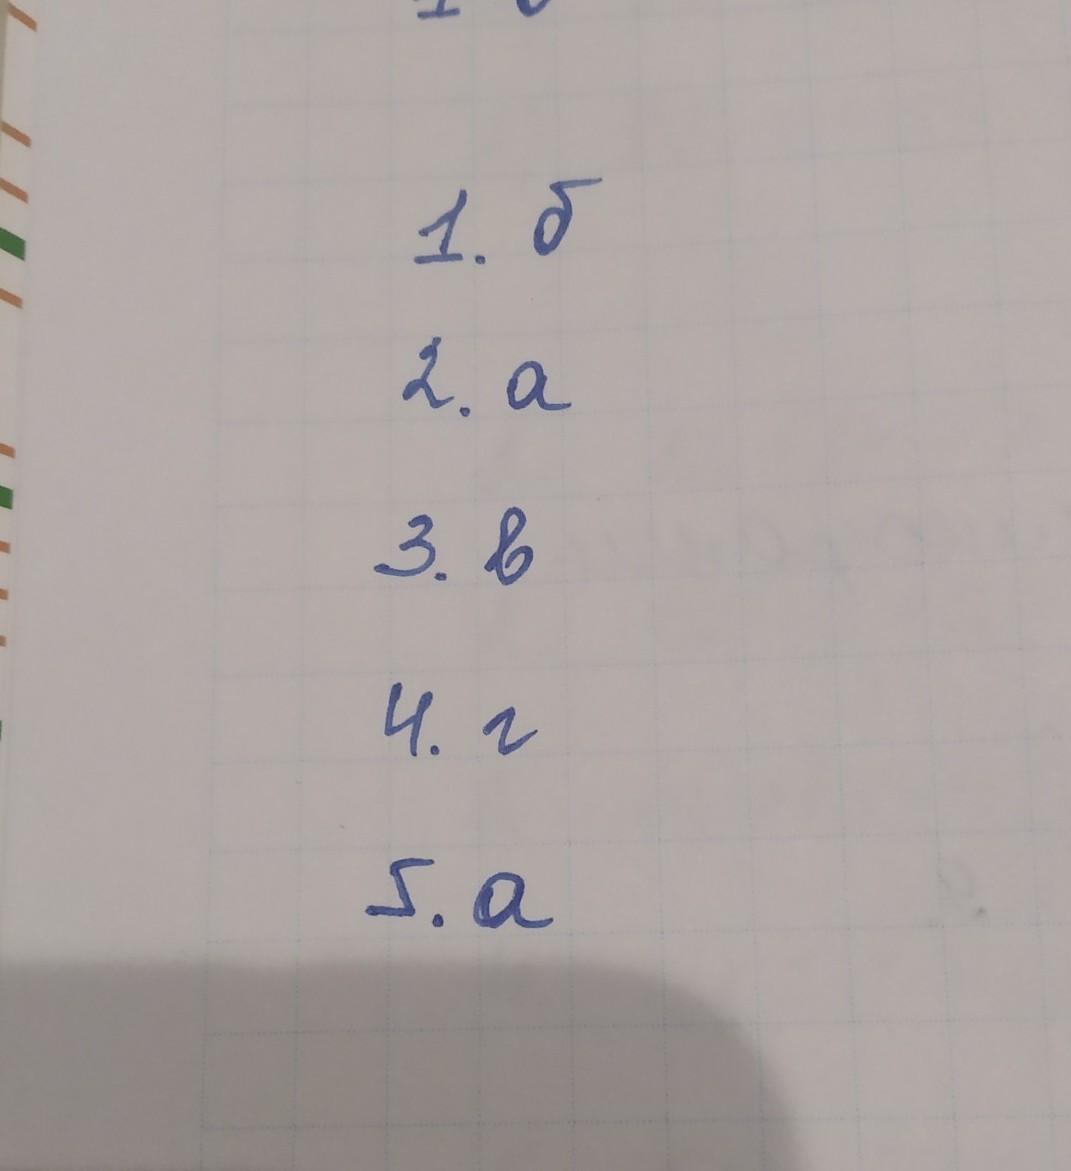 1. б
2. а
3. в
4. г
5. а